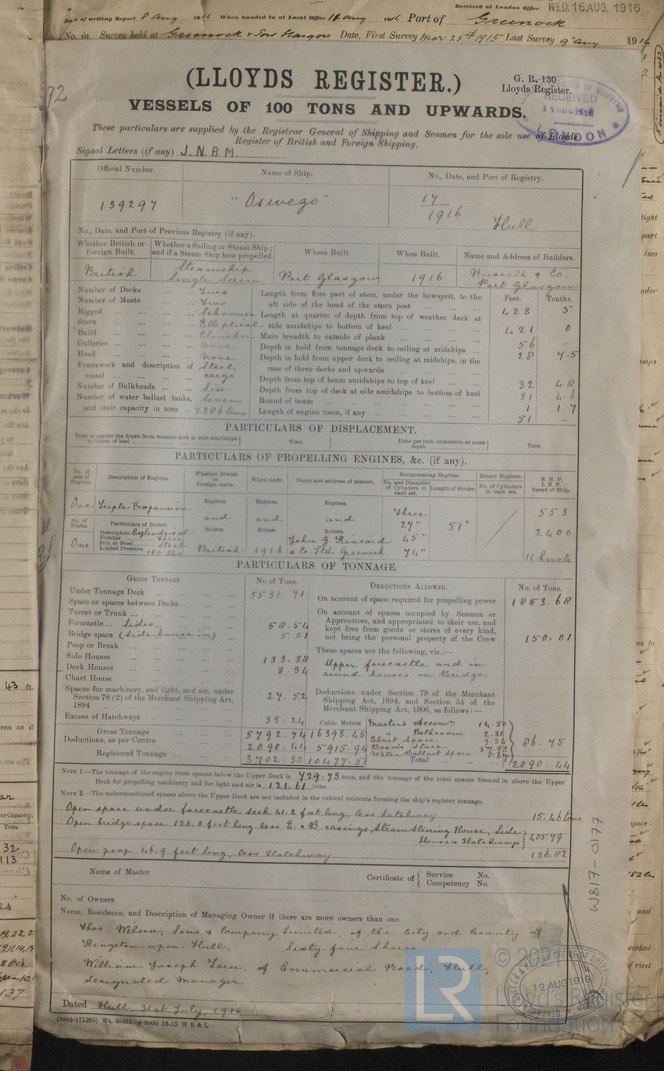 Date of writing Report 8 Aug 1916 When handed in at Local Office 10 Aug 1916 Port of Greenock
Received at London Office WED. 16 AUG. 1916
No. in Survey held at Greenock & Port Glasgow Date, First Survey Mar 25th 1915 Last Survey 9 Aug 1916
(LLOYDS REGISTER.)
G. R. 130
Lloyds Register.
RECEIVED
LONDON
VESSELS OF 100 TONS AND UPWARDS.
These particulars are supplied by the Registrar General of Shipping and Seamen for the sole use of Lloyds
Register of British and Foreign Shipping.
Signal Letters (if any) J.N.B.M.
Official Number. Name of Ship. No., Date, and Port of Registry.
139297 "Oswego" 17/1916 Hull
No., Date, and Port of Previous Registry (if any).
Whether British or Foreign Built. Whether a Sailing or Steam Ship; and if a Steam Ship how propelled. Where Built. When Built. Name and Address of Builders.
British Steamship Single Screw Port Glasgow 1916 Russell & Co. Port Glasgow
Feet. Tenths.
Number of Decks Two
Number of Masts Two
Rigged Schooner
Stern Elliptical
Build Clencher
Galleries None
Head None
Framework and description of vessel Steel cargo
Number of Bulkheads Six
Number of water ballast tanks, Seven
and their capacity in tons 2386 tons
Length from fore part of stem, under the bowsprit, to the aft side of the head of the stern post 423 5
Length at quarter of depth from top of weather deck at side amidships to bottom of keel 421 0
Main breadth to outside of plank 56 -
Depth in hold from tonnage deck to ceiling at midships 28 7.5
Depth in hold from upper deck to ceiling at midships, in the case of three decks and upwards
Depth from top of beam amidships to top of keel 32 48
Depth from top of deck at side amidships to bottom of keel 31
Round of beam 1 1.7
Length of engine room, if any 51 -
PARTICULARS OF DISPLACEMENT.
Total to quarter the depth from weather deck at side amidships to bottom of keel Tons. Ditto per inch immersion at same depth Tons.
PARTICULARS OF PROPELLING ENGINES, &c. (if any).
No. of sets of Engines. Description of Engines. Whether British or Foreign made. When made. Name and address of makers. Reciprocating Engines. No. and Diameter of Cylinders in each set. Length of Stroke. Rotary Engines. No. of Cylinders in each set. N.H.P. I.H.P. Speed of Ship.
One Triple Expansion Engines. Engines. Engines. Three 27" 51" 553
No. of Shafts. Particulars of Boilers. and and and 45" 2400
One Description Cylindrical Boilers. Boilers. Boilers.
Number Three
Iron or Steel Steel
Loaded Pressure 180 lbs British 1916 John G. Kincaid & Co Ltd. Greenock 74" 11 knots
PARTICULARS OF TONNAGE.
GROSS TONNAGE. No. of Tons. DEDUCTIONS ALLOWED. No. of Tons.
Under Tonnage Deck 5531.71
Space or spaces between Decks
Turret or Trunk
Forecastle Sides 58.54
Bridge space (Side house in) 5.01
Poop or Break
Side Houses 133.38
Deck Houses 8.34
Chart House
Spaces for machinery, and light, and air, under Section 78 (2) of the Merchant Shipping Act, 1894 27.52
Excess of Hatchways 33.24
Cubic Metres
Gross Tonnage 5792.74 16393.45
Deductions, as per Contra 2090.44 5915.94
Registered Tonnage 3702.30 10477.51
On account of space required for propelling power 1853.68
On account of spaces occupied by Seamen or Apprentices, and appropriated to their use, and kept free from goods or stores of every kind, not being the personal property of the Crew 150.01
These spaces are the following, viz.:—
Upper forecastle and in round houses on Bridge
Deductions under Section 79 of the Merchant Shipping Act, 1894, and Section 54 of the Merchant Shipping Act, 1906, as follows:—
Master's Accom 14.50
Chart Space
Bosn's Store
Water Ballast space
86.75
Total 2090.44
NOTE 1.—The tonnage of the engine room spaces below the Upper Deck is 729.73 tons, and the tonnage of the total spaces framed in above the Upper
Deck for propelling machinery and for light and air is 121.61 tons.
NOTE 2.—The undermentioned spaces above the Upper Deck are not included in the cubical contents forming the ship's register tonnage.
Open space under forecastle deck 41.2 feet long, less hatchway 15.46 tons
Open bridge space 123.2 feet long less E. & B. casings Steam Steering House, Side Houses & Hatchways 405.79
Open poop 46.9 feet long, less Hatchway 136.82
Name of Master Certificate of { Service No.
Competency No.
No. of Owners
Name, Residence, and Description of Managing Owner if there are more owners than one.
Thos. Wilson, Sons & Company Limited, of the City and County of
Kingston upon Hull, Sixty four Shares
William Joseph of Commercial Road, Hull,
Designated Manager.
Dated Hull, 31st July, 1916
12 AUG 1916
W817-0177
LR
Lloyd's Register
Foundation